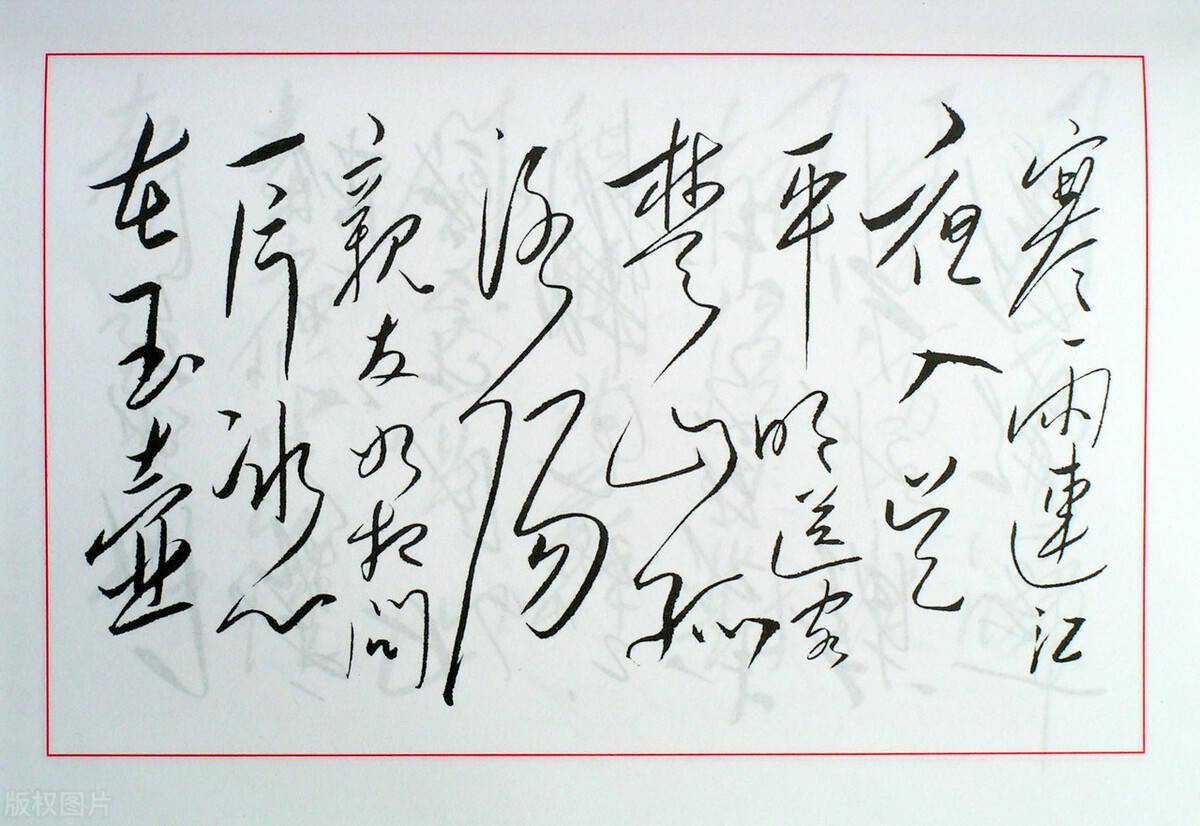 寒雨連江
夜入吴
平明送客
楚山孤
洛陽
親友如相問
一片冰心
在玉壶
版权图片